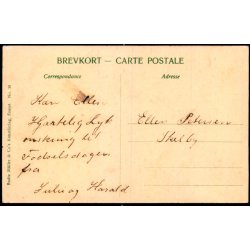 BREVKORT — CARTE POSTALE
Correspondance
Adresse
Kære Ellen
Hjertelig Lyk
ønskning til
Fødselsdagen
fra
Julie og Harald
Ellen Petersen